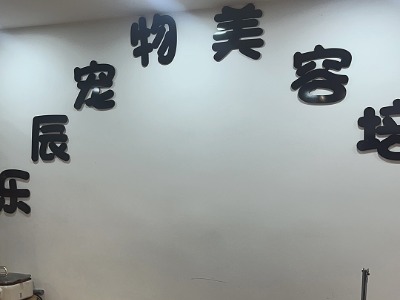 乐辰宠物美容培